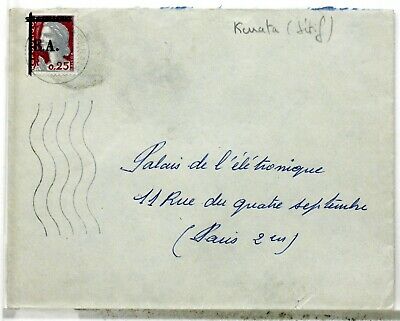 Kerrata (Sétif)
E.A.
0,25
Palais de l'élétronique
11 Rue du quatre septembre
(Paris 2em)